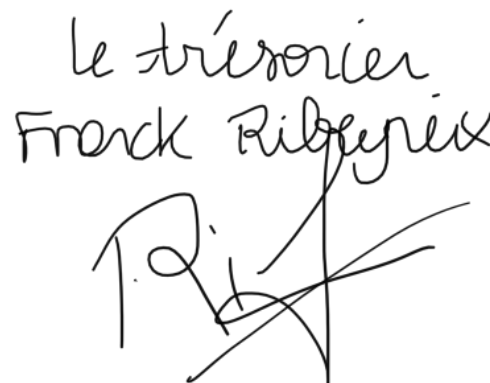 le trésorier
Franck Ribeyreix